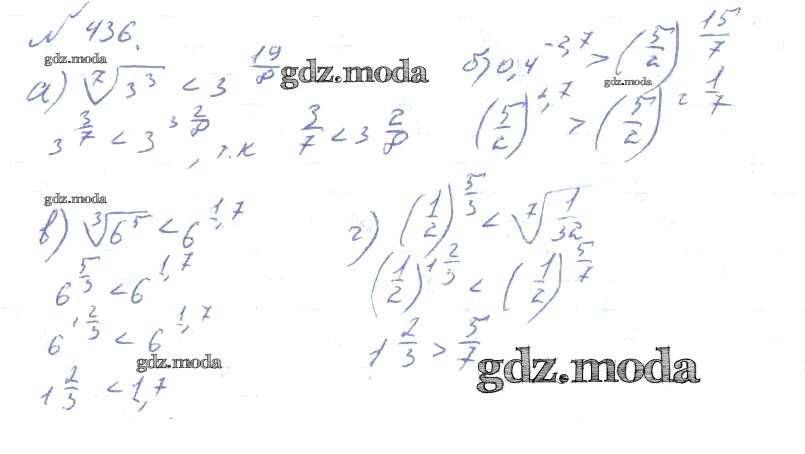 № 436.
gdz.moda
а) ⁷√3³ < 3^(19/8)
gdz.moda
3^(3/7) < 3^(3 2/8), т.к 3/7 < 3 2/8
б) 0,4^(-2,7) > (5/2)^(15/7)
gdz.moda
(5/2)^(2,7) > (5/2)^(2 1/7)
gdz.moda
в) ³√6⁵ < 6^(1,7)
6^(5/3) < 6^(1,7)
6^(1 2/3) < 6^(1,7)
gdz.moda
1 2/3 < 1,7
г) (1/2)^(5/3) < ⁷√(1/32)
(1/2)^(1 2/3) < (1/2)^(5/7)
1 2/3 > 5/7
gdz.moda